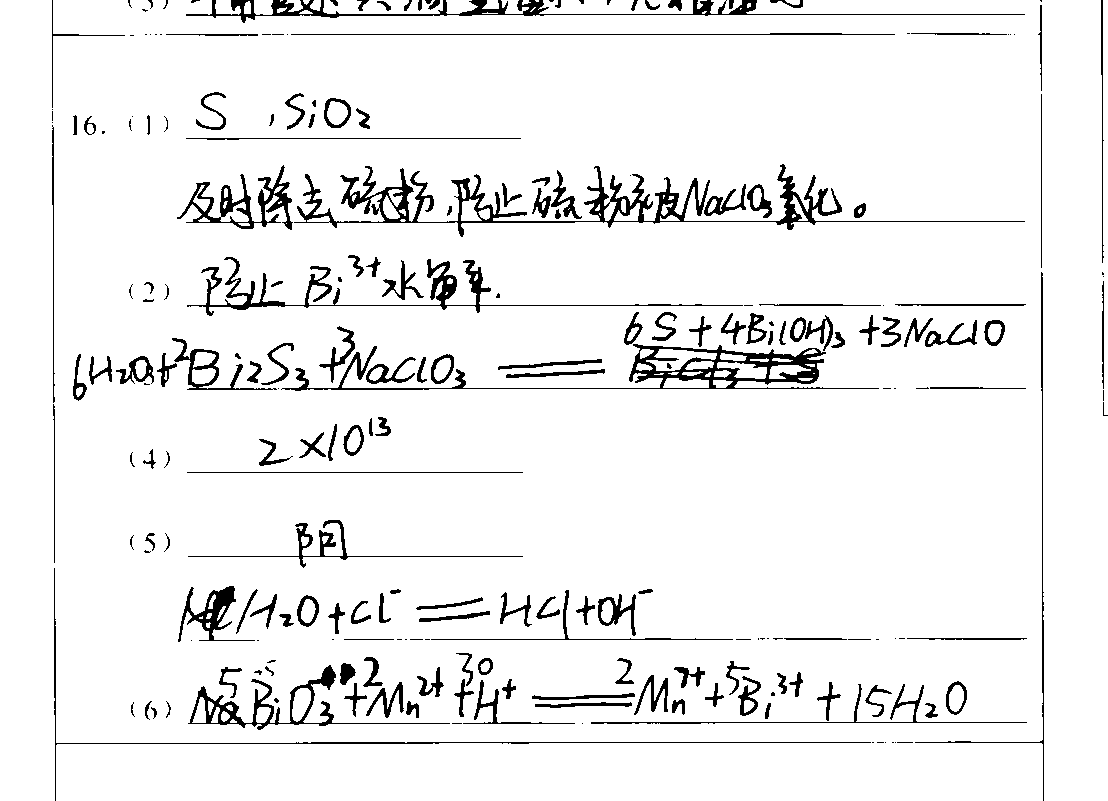 (3)
16. (1) S , SiO₂
及时除去硫粉,防止硫粉被NaClO₃氧化。
(2) 防止 Bi³⁺水解.
6S + 4Bi(OH)₃ + 3NaClO
6H₂O + 2Bi₂S₃ + 3NaClO₃ ══
(4) 2×10¹³
(5) 阴
H₂O + Cl⁻ ══ HCl + OH⁻
(6) 5BiO₃⁻ + 2Mn²⁺ + 30H⁺ ══ 2Mn⁷⁺ + 5Bi³⁺ + 15H₂O